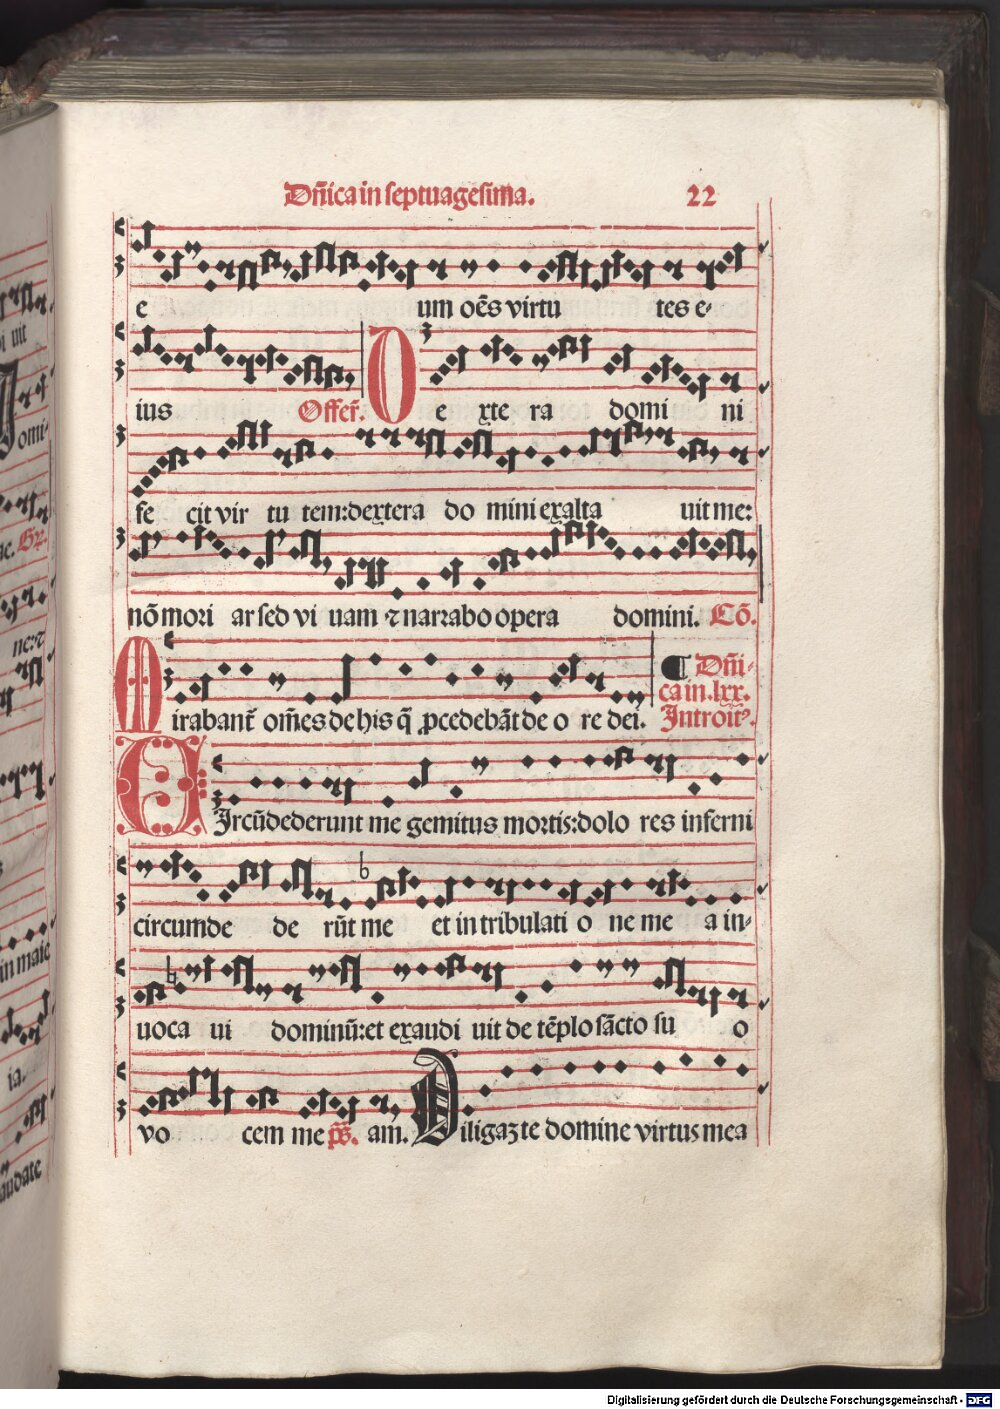 Dn̄ica in septuagesima. 22
e um oēs virtu tes e-
ius Offer̄. De xte ra domi ni
fe cit vir tu tem: dextera do mini exalta uit me:
nō mori ar sed vi uam ⁊ narrabo opera domini. Cō.
Mirabant̄ om̄es de his q̄ ꝓcedebāt de o re dei. ¶ Dn̄i-
ca in .lxx.
Introitꝰ.
Circūdederunt me gemitus mortis: dolo res inferni
circumde de rūt me et in tribulati o ne me a in-
uoca ui dominū: et exaudi uit de tēplo sācto su o
vo cem me p̄s. am. Diligaꝫ te domine virtus mea
ni ut
omi-
ac. Gr̄.
ne: ⁊
in maie
ia.
audate
Digitalisierung gefördert durch die Deutsche Forschungsgemeinschaft - DFG